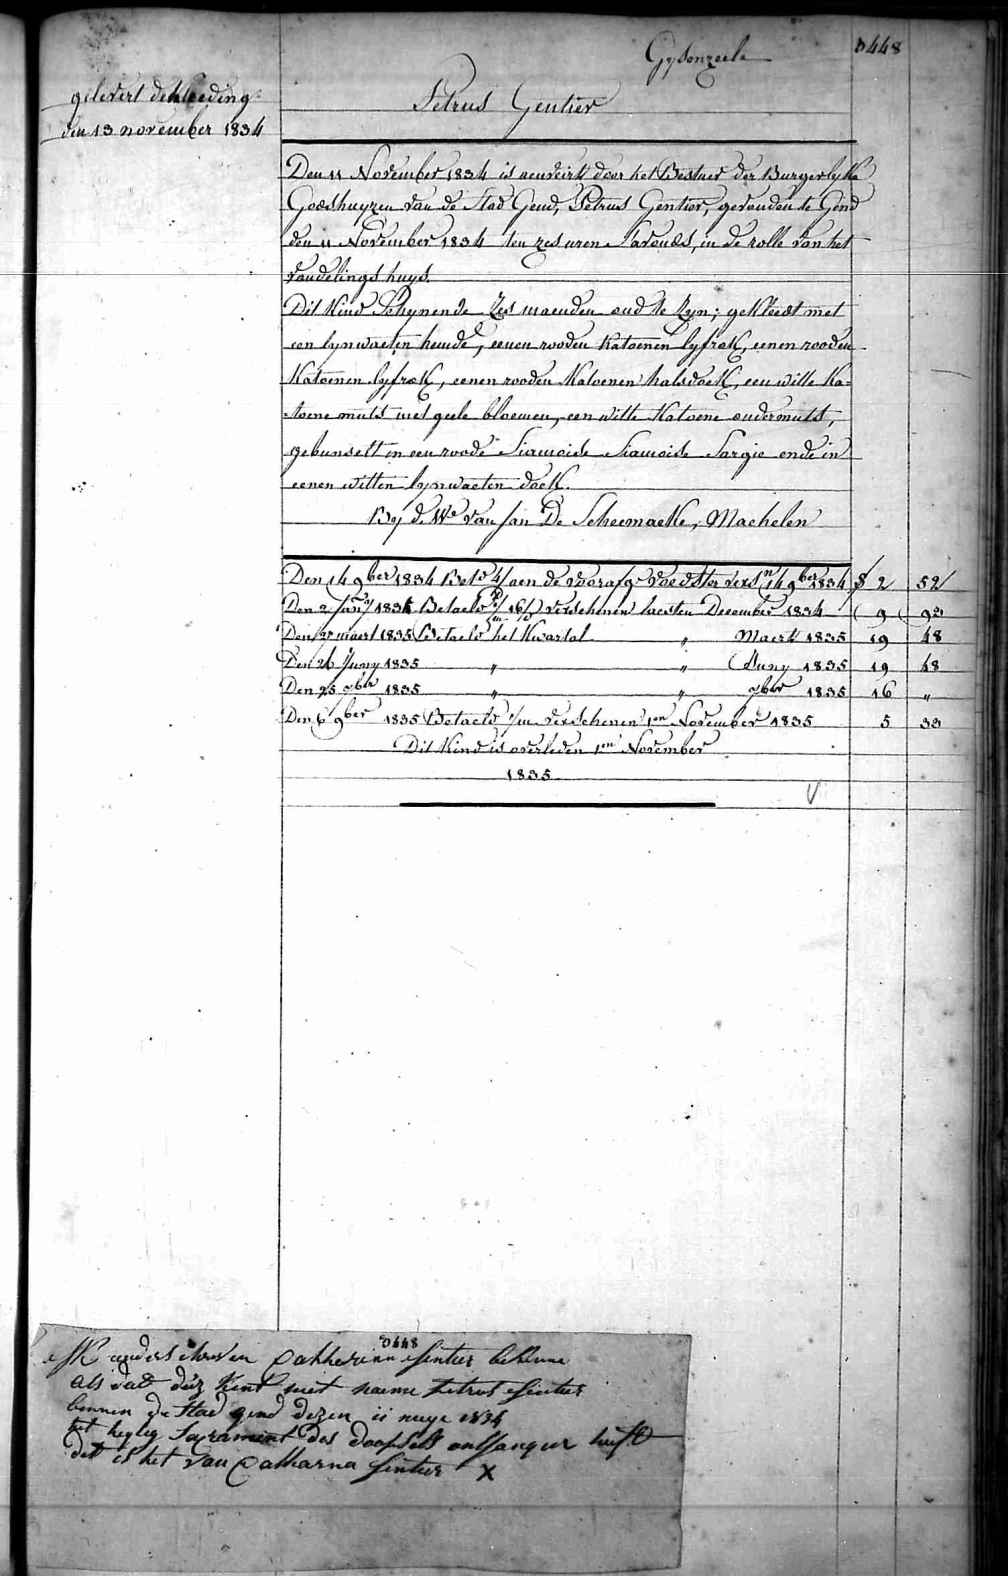 Gysenzeele
3448
gelevert de kleeding
den 13 november 1834
Petrus Gentier
Den 11 November 1834 is aenveirt door het Bestuer der Burgerlyke
Godshuyzen van de Stad Gend, Petrus Gentier, gevonden te Gend
den 11 November 1834 ten zes uren s'avonds, in de rolle van het
vondelings huys.
Dit Kind Schynende zes maenden oud te zyn; gekleedt met
een lynwaeten hemde, eenen rooden katoenen lyfrok, eenen rooden
Katoenen lyfrok, eenen rooden Katoenen halsdoek, een witte Ka-
toene muts met geele bloemen, een witte Katoene ondermuts,
gebunselt in een roode Siamoise Siamoise Sargie ende in
eenen witten lynwaeten doek.
By d. We van Jan De Scheemaeke, Machelen
Den 14 9ber 1834 Bet.d 4/ aen de voorafg.e voedster versn 14 9ber 1834 f 2 52
Den 2 Jany 1835 Betaeld 1/m 16/d verschenen laesten December 1834 9 93
Den 27 maert 1835 Betaeld het Kwartal " Maert 1835 19 48
Den 26 Juny 1835 " " Juny 1835 19 48
Den 25 7ber 1835 " " 7ber 1835 16 "
Den 6 9ber 1835 Betaeld 1/m verschenen 1en November 1835 5 33
Dit Kind is overleden 1en November
1835
V
3448
ik onderschreven Catherina Sintier bekenne
als dat diez kent met naeme Petrus Sintier
bennen de stad gend dezen 11 meye 1834
het heyleg Sacrament des doopsels ontfangen heeft
det is het van Catharna Sintier X